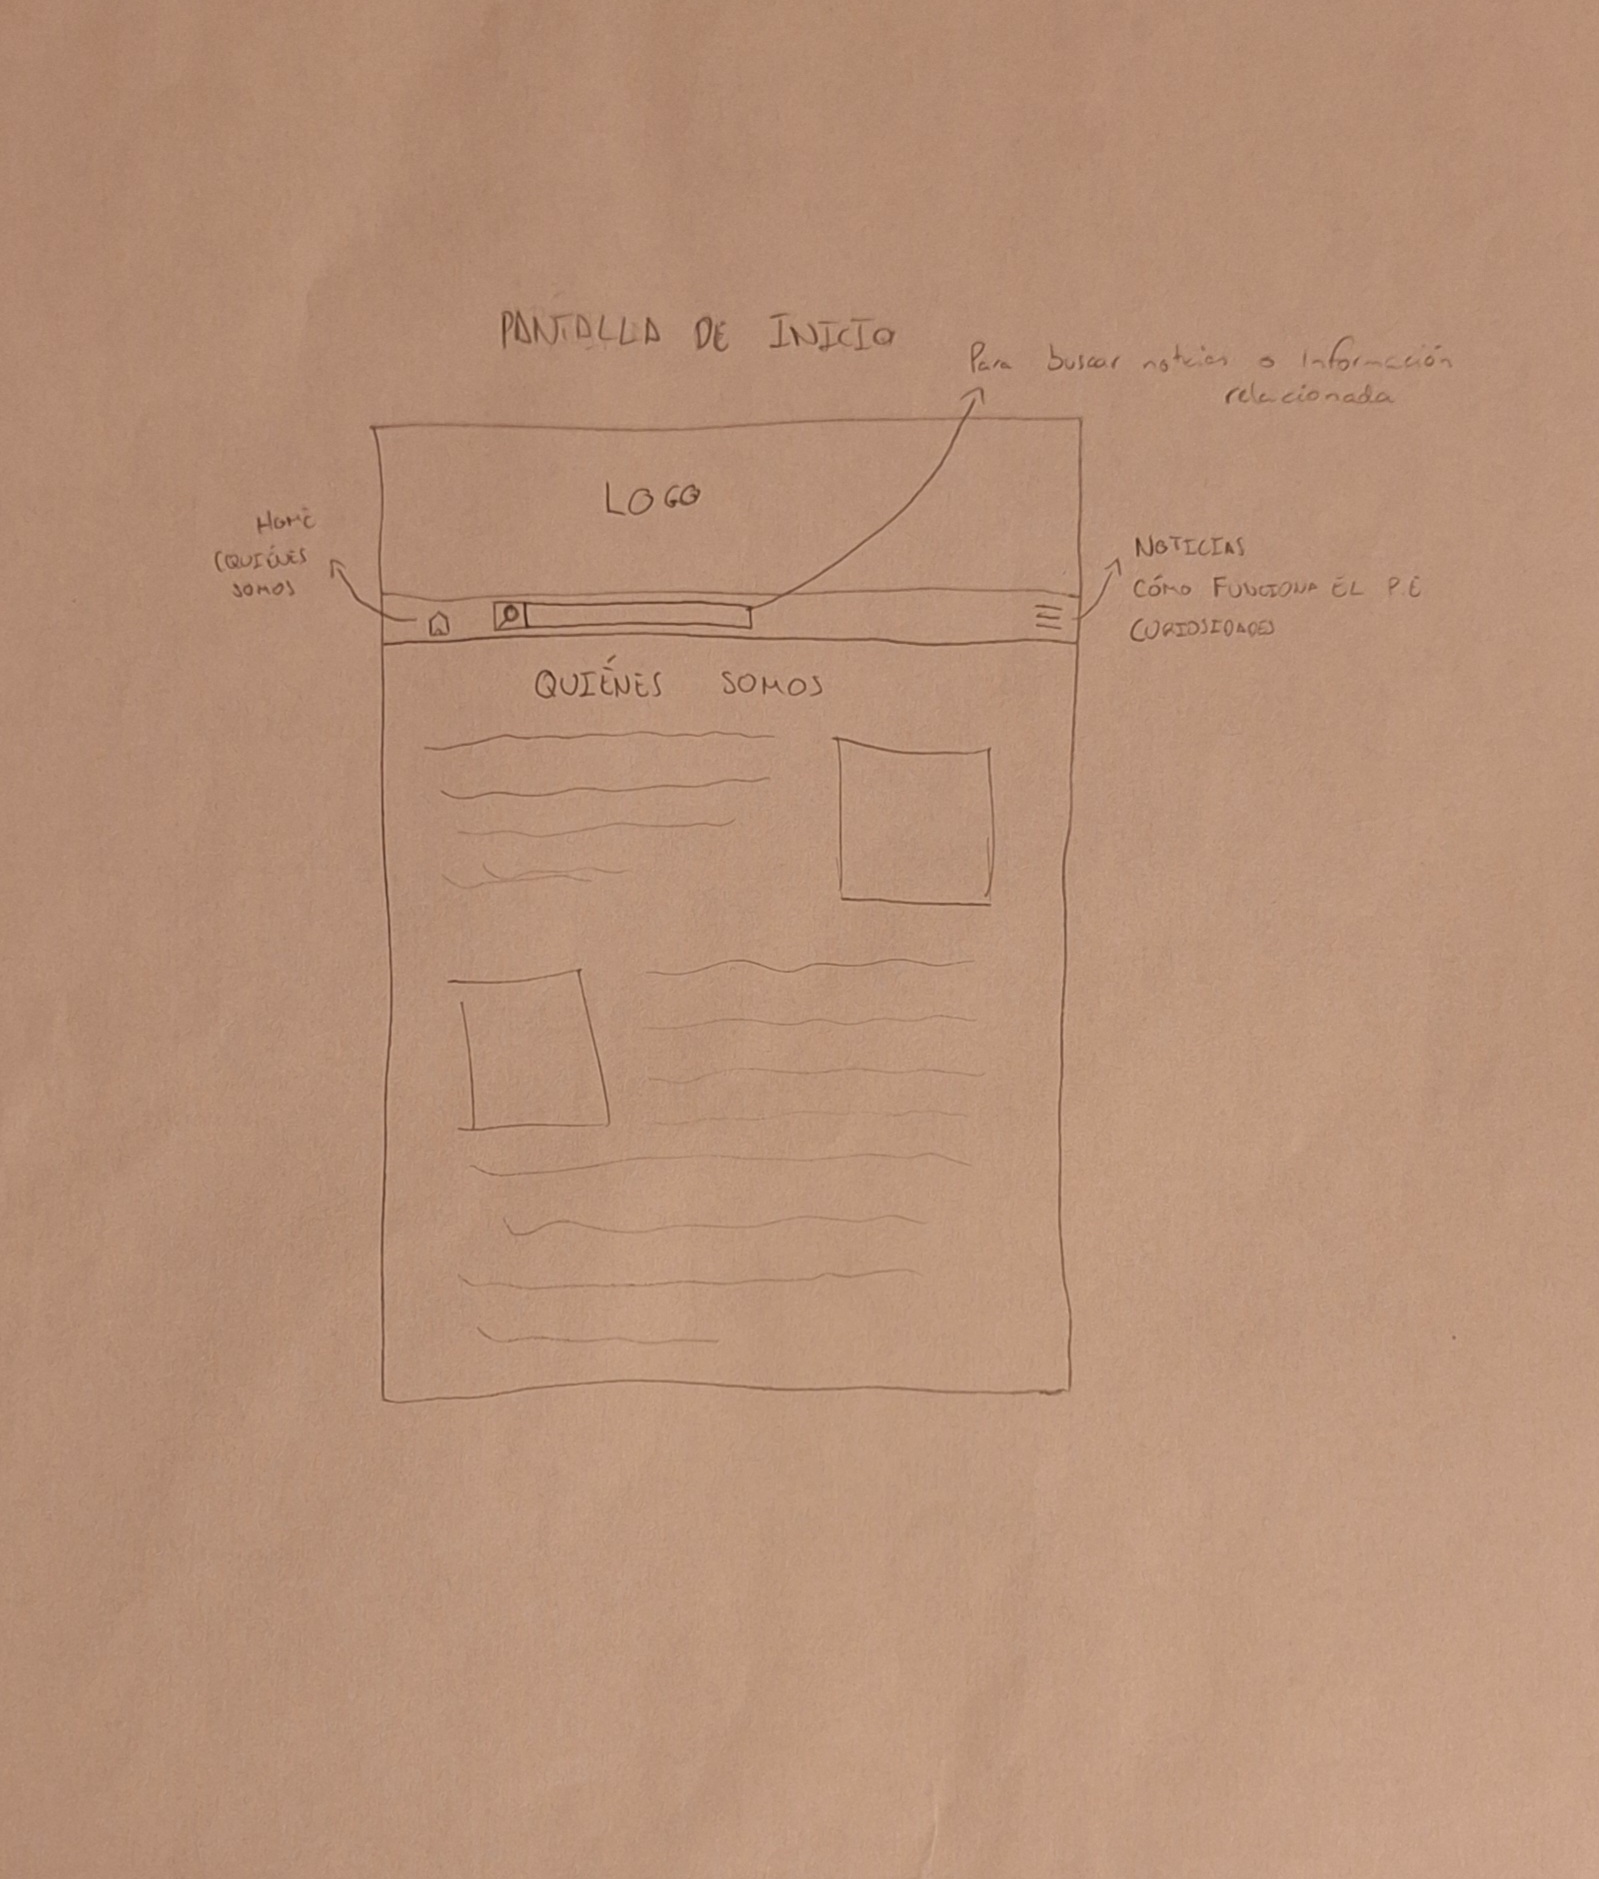 PANTALLA DE INICIO
Para buscar noticias o Información
relacionada
LOGO
HOME
(QUIÉNES
SOMOS
NOTICIAS
CÓMO FUNCIONA EL P.E
CURIOSIDADES
QUIÉNES SOMOS